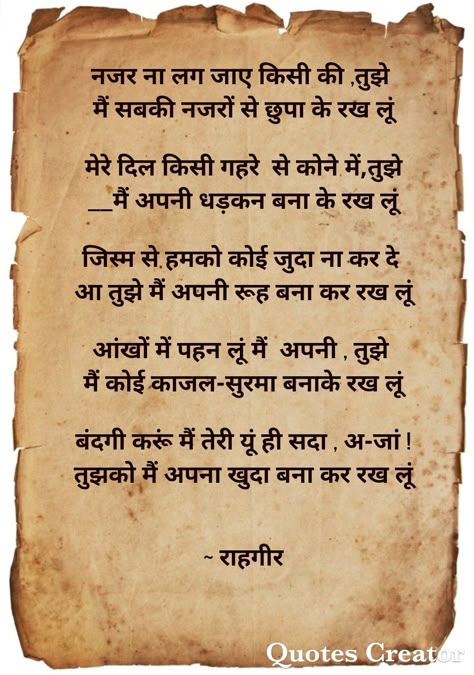 नजर ना लग जाए किसी की ,तुझे
मैं सबकी नजरों से छुपा के रख लूं
मेरे दिल किसी गहरे से कोने में,तुझे
__मैं अपनी धड़कन बना के रख लूं
जिस्म से हमको कोई जुदा ना कर दे
आ तुझे मैं अपनी रूह बना कर रख लूं
आंखों में पहन लूं मैं अपनी , तुझे
मैं कोई काजल-सुरमा बनाके रख लूं
बंदगी करूं मैं तेरी यूं ही सदा , अ-जां !
तुझको मैं अपना खुदा बना कर रख लूं
~ राहगीर
Quotes Creator